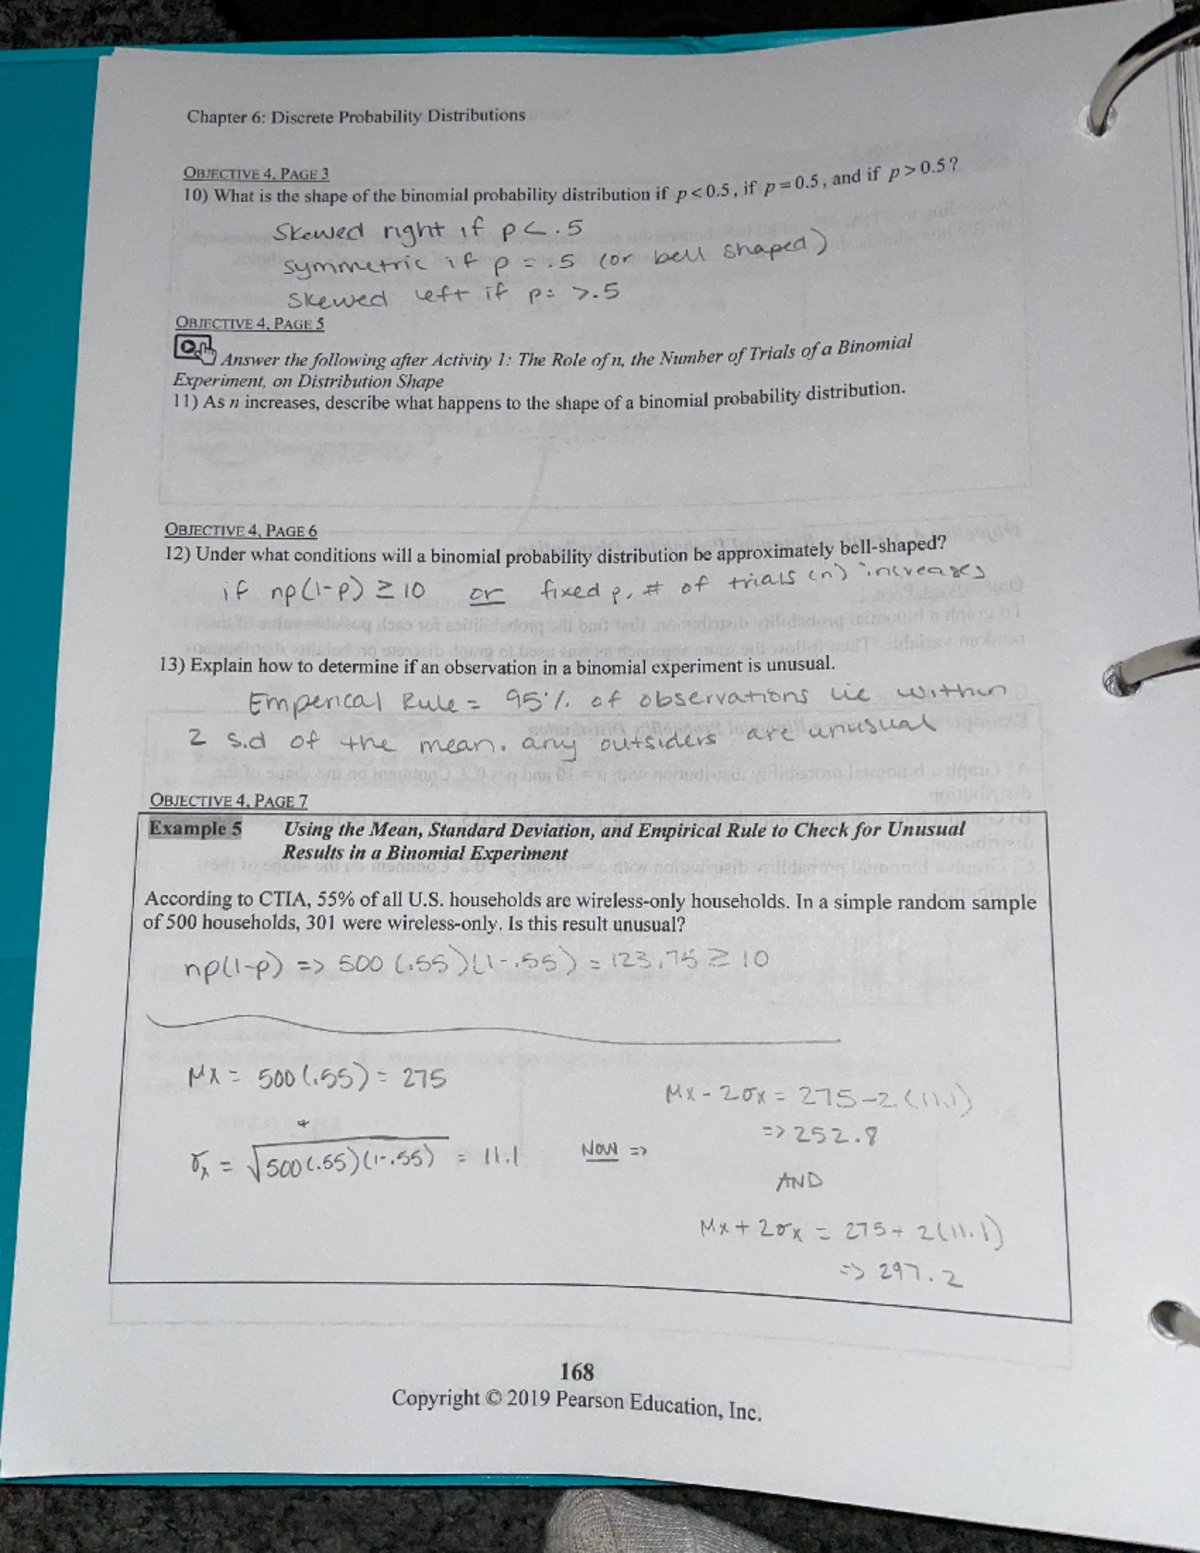 Chapter 6: Discrete Probability Distributions
OBJECTIVE 4, PAGE 3
10) What is the shape of the binomial probability distribution if p < 0.5, if p = 0.5, and if p > 0.5?
Skewed right if p < .5
Symmetric if p = .5 (or bell shaped)
Skewed left if p = > .5
OBJECTIVE 4, PAGE 5
Answer the following after Activity 1: The Role of n, the Number of Trials of a Binomial
Experiment, on Distribution Shape
11) As n increases, describe what happens to the shape of a binomial probability distribution.
OBJECTIVE 4, PAGE 6
12) Under what conditions will a binomial probability distribution be approximately bell-shaped?
if np(1-p) ≥ 10 or fixed p, # of trials (n) increases
13) Explain how to determine if an observation in a binomial experiment is unusual.
Emperical Rule = 95% of observations lie within
2 s.d of the mean. any outsiders are unusual
OBJECTIVE 4, PAGE 7
Example 5 Using the Mean, Standard Deviation, and Empirical Rule to Check for Unusual
Results in a Binomial Experiment
According to CTIA, 55% of all U.S. households are wireless-only households. In a simple random sample
of 500 households, 301 were wireless-only. Is this result unusual?
np(1-p) => 500 (.55)(1-.55) = 123.75 ≥ 10
Mx = 500(.55) = 275
Mx - 2σx = 275-2(11.1)
=> 252.8
σx = √500(.55)(1-.55) = 11.1 Now =>
AND
Mx + 2σx = 275 + 2(11.1)
=> 297.2
168
Copyright © 2019 Pearson Education, Inc.